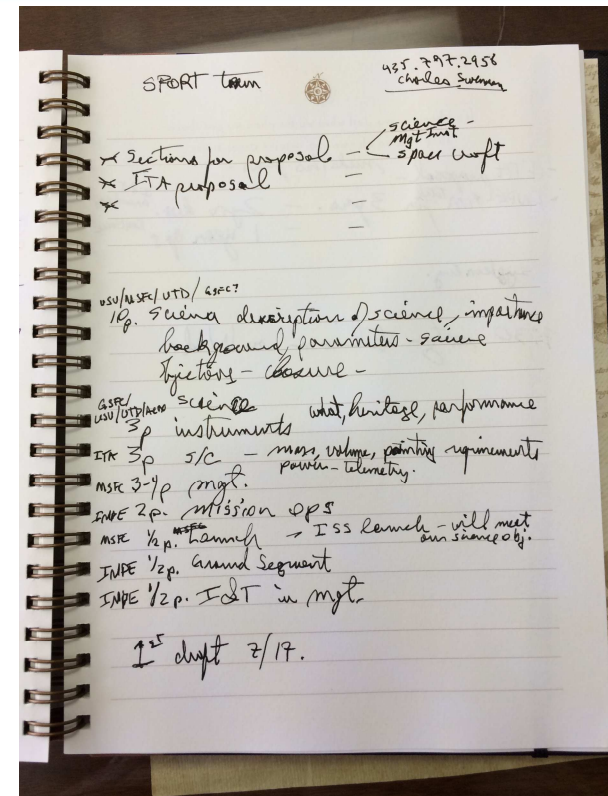 SPORT team
435.797.2956
Charles Swenson
* Sections for proposal - science -
Mgt Inst
space craft
* ITA proposal -
* -
-
USU/MSFC/UTD/GSFC?
10p. Science description of science, importance
background, parameters - science
Objectives - closure -
GSFC/
USU/UTD/Aero science what, heritage, performance
3p instruments
ITA 3p S/C - mass, volume, pointing requirements
power - telemetry.
MSFC 3-4p mgt.
INPE 2p. mission ops
MSFC 1/2 p. Launch → ISS launch - will meet
our science obj.
INPE 1/2 p. Ground Segment
INPE 1/2 p. I&T in mgt.
1st draft 7/17.